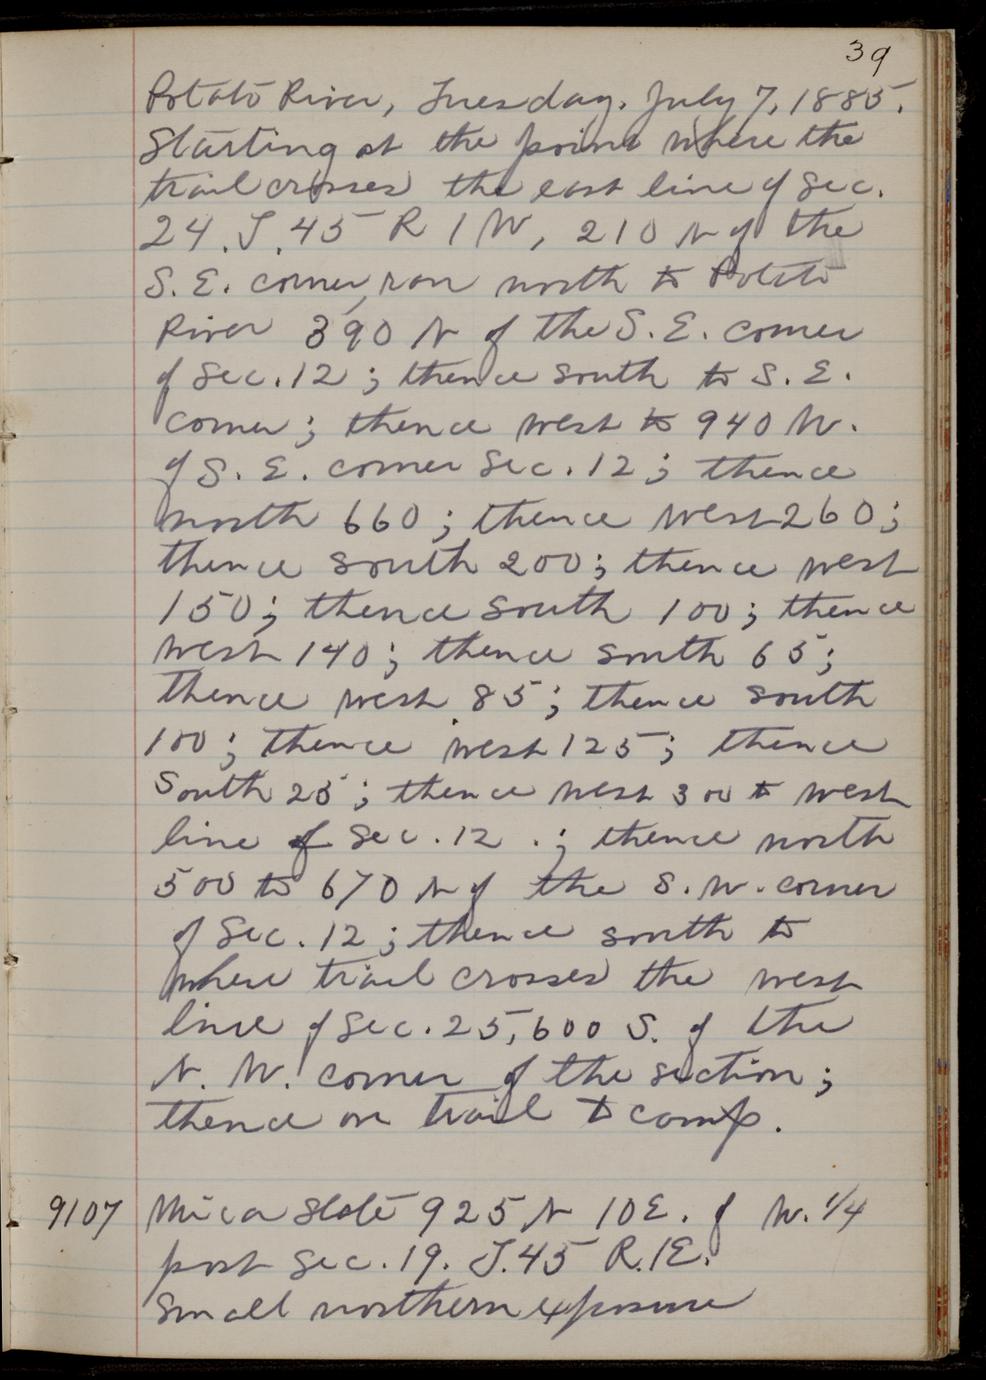 39
Potato River, Tuesday, July 7, 1885.
Starting at the point where the
trail crosses the east line of Sec.
24. T. 45 R 1 W, 210 N of the
S. E. corner, ran north to Potato
River 390 N of the S. E. corner
of Sec. 12; thence south to S. E.
corner; thence west to 940 W.
of S. E. corner Sec. 12; thence
north 660; thence west 260;
thence south 200; thence west
150; thence south 100; thence
west 140; thence south 65;
thence west 85; thence south
100; thence west 125; thence
South 25; thence west 300 to west
line of Sec. 12.; thence north
500 to 670 N of the S. W. corner
of Sec. 12; thence south to
where trail crosses the west
line of Sec. 25, 600 S. of the
N. W. corner of the section;
thence on trail to camp.
9107 Mica slate 925 N 10 E. of W. 1/4
post Sec. 19. T. 45 R. 1E.
Small northern exposure